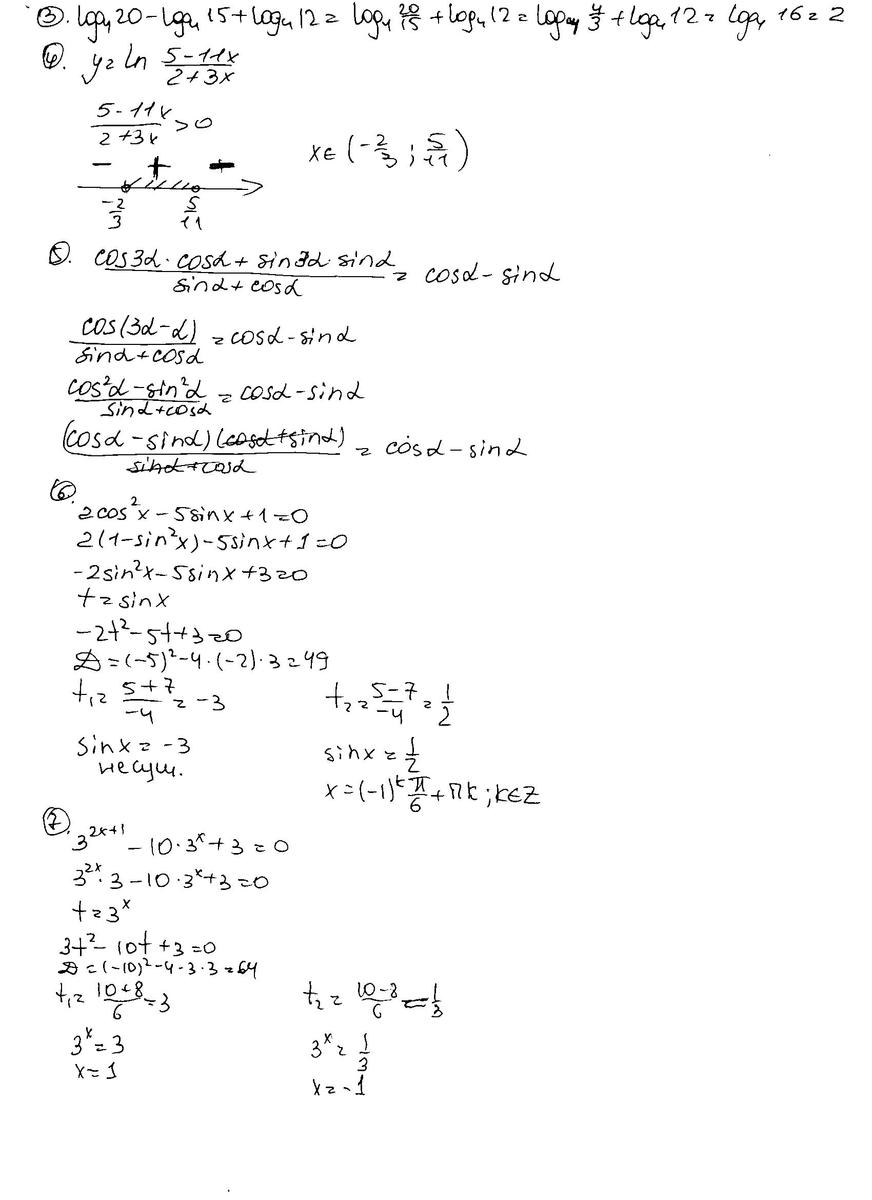 ③. log₄20 - log₄15 + log₄12 = log₄ 20/15 + log₄12 = log₄ 4/3 + log₄12 = log₄ 16 = 2
④. y = ln (5-11x)/(2+3x)
(5-11x)/(2+3x) > 0
- + -
x ∈ (-2/3 ; 5/11)
-2/3 5/11
⑤. (cos3α · cosα + sin3α · sinα)/(sinα + cosα) = cosα - sinα
cos(3α-α)/(sinα+cosα) = cosα - sinα
(cos²α - sin²α)/(sinα+cosα) = cosα - sinα
(cosα - sinα)(cosα + sinα)/(sinα+cosα) = cosα - sinα
⑥.
2cos²x - 5sinx + 1 = 0
2(1-sin²x) - 5sinx + 1 = 0
-2sin²x - 5sinx + 3 = 0
t = sinx
-2t² - 5t + 3 = 0
D = (-5)² - 4·(-2)·3 = 49
t₁ = (5+7)/-4 = -3 t₂ = (5-7)/-4 = 1/2
sinx = -3 sinx = 1/2
не сущ.
x = (-1)ᵏ π/6 + πk ; k∈Z
⑦.
3²ˣ⁺¹ - 10·3ˣ + 3 = 0
3²ˣ · 3 - 10·3ˣ + 3 = 0
t = 3ˣ
3t² - 10t + 3 = 0
D = (-10)² - 4·3·3 = 64
t₁ = (10+8)/6 = 3 t₂ = (10-8)/6 = 1/3
3ˣ = 3 3ˣ = 1/3
x = 1 x = -1